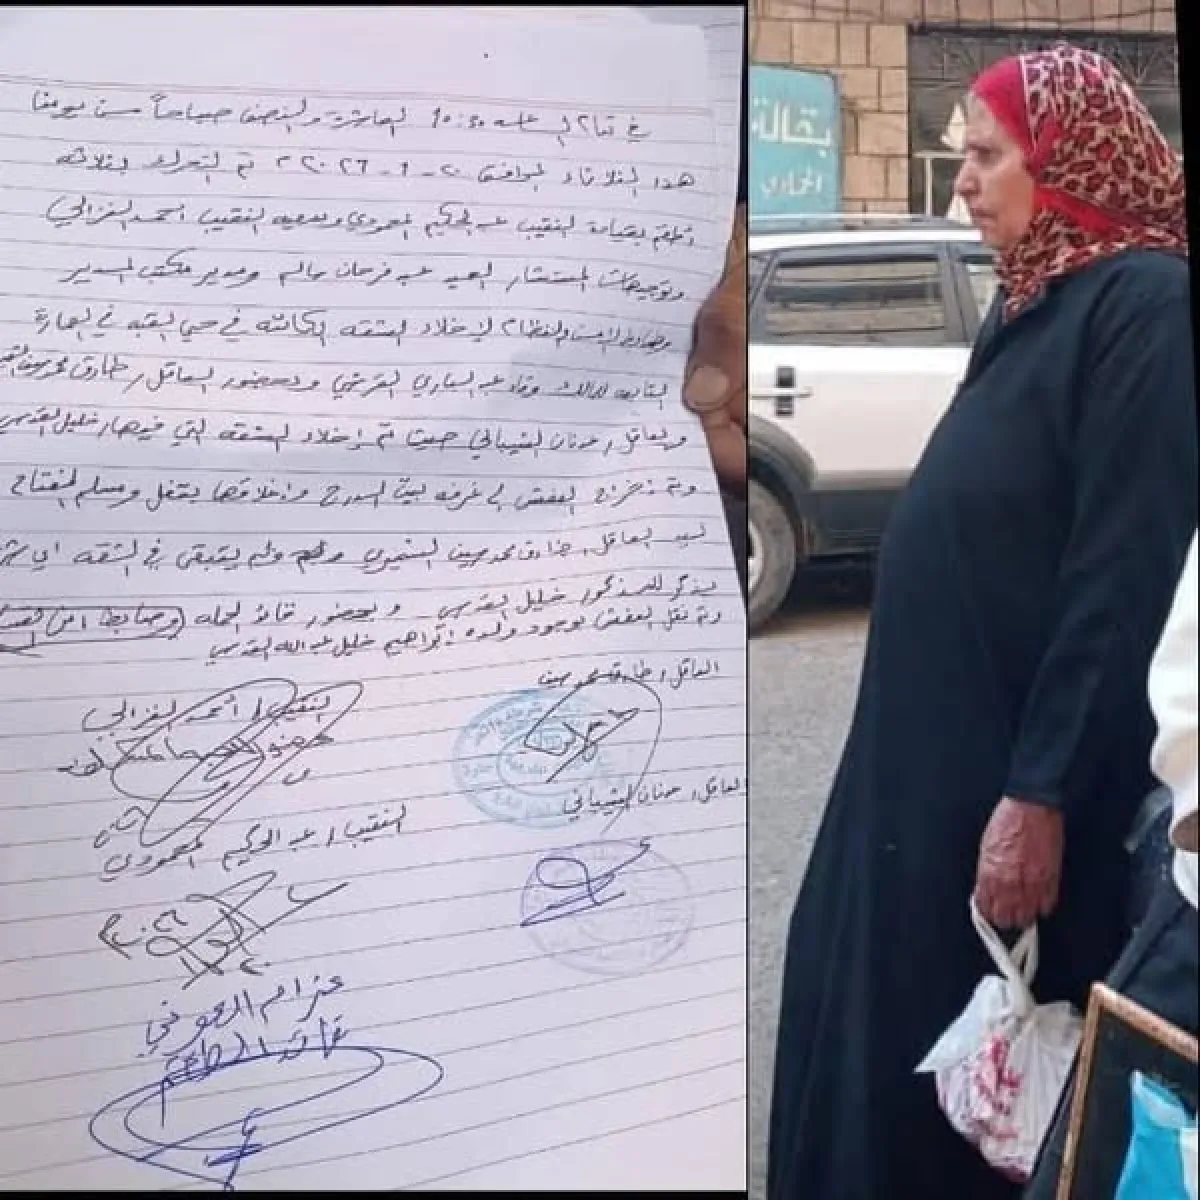 في تمام الساعه 10:30 العاشرة والنصف صباحاً من يومنا
هذا الثلاثاء الموافق 20-1-2026 م تم التحرك بثلاثه
أطقم بقيادة النقيب عبد الحكيم المحمودي وبمعيه النقيب أحمد الغزالي
وتوجيهات المستشار العميد عبده فرحان سالم ومدير مكتب المدير
وضباط الامن والنظام لاخلاء الشقه الكائنه في حي البقه في العمارة
التابعه للمالك عبد الباري القرشي وبحضور العاقل / طارق محمد سيف
والعاقل / عدنان الشيباني حيث تم إخلاء الشقه التي فيها / خليل القدسي
وتم إخراج العفش الى غرفه بيت الدرج واغلاقها بقفل ومسلم المفتاح
ليد العاقل طارق محمد سيف ولم يتبقى في الشقه اي
يذكر للمذكور خليل القدسي وبحضور قائد الحمله
وتم نقل العفش بوجود ولده إبراهيم خليل عبدالله القدسي
العاقل / طارق محمد سيف
النقيب / أحمد الغزالي
العاقل / عدنان الشيباني
النقيب / عبد الحكيم المحمودي
عزام
قائد الطقم
بقالة